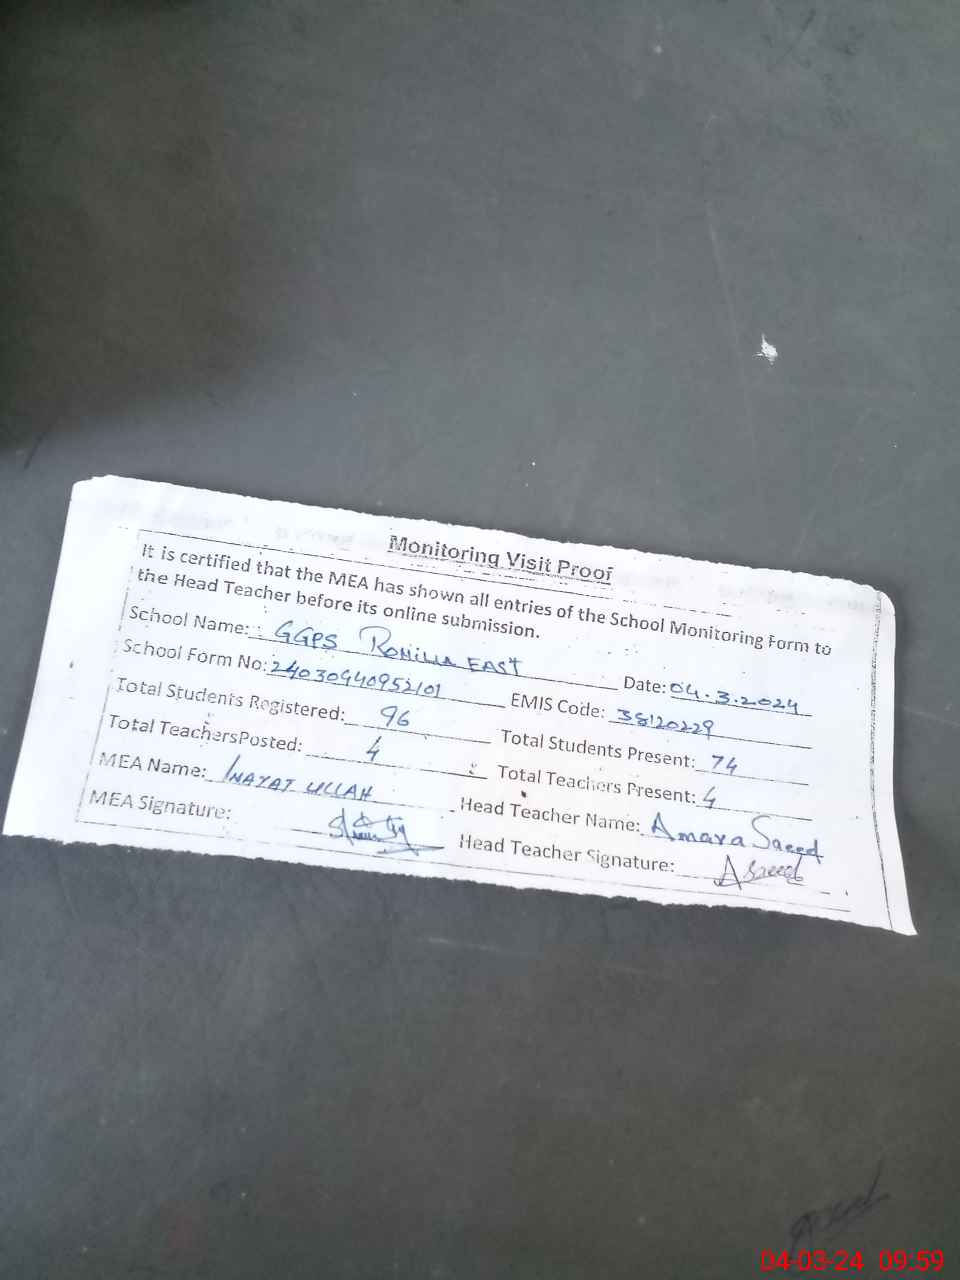 Monitoring Visit Proof
It is certified that the MEA has shown all entries of the School Monitoring Form to
the Head Teacher before its online submission.
School Name: GGPS ROHILLA EAST Date: 04.3.2024
School Form No: 24030940952101 EMIS Code: 38120229
Total Students Registered: 96 Total Students Present: 74
Total TeachersPosted: 4 Total Teachers Present: 4
MEA Name: INAYAT ULLAH Head Teacher Name: Amara Saeed
MEA Signature: Head Teacher Signature: ASaeed
04-03-24 09:59